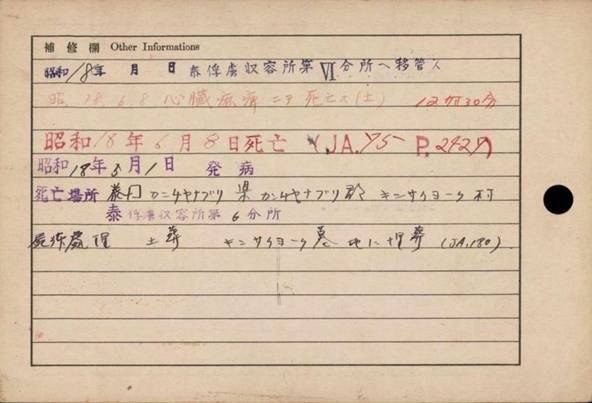 補修欄 Other Informations
昭和18年 月 日 泰俘虜収容所第VI分所ヘ移管ス
昭 18.6.8 心臓麻痺ニテ死亡ス(土) 12時30分
昭和18年6月8日死亡 (JA.75 P.2427)
昭和18年6月1日 発病
死亡場所 泰国カンチヤナブリ県カンチヤナブリ郡キンサイヨーク村
泰俘虜収容所第6分所
屍体處理 土葬 キンサイヨーク墓地に埋葬 (JA.180)